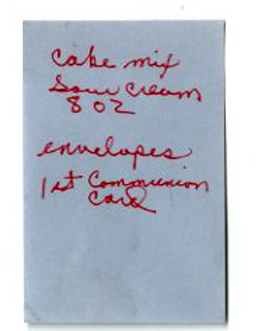 cake mix
Sour Cream
8 oz
envelopes
1st Communion
Card